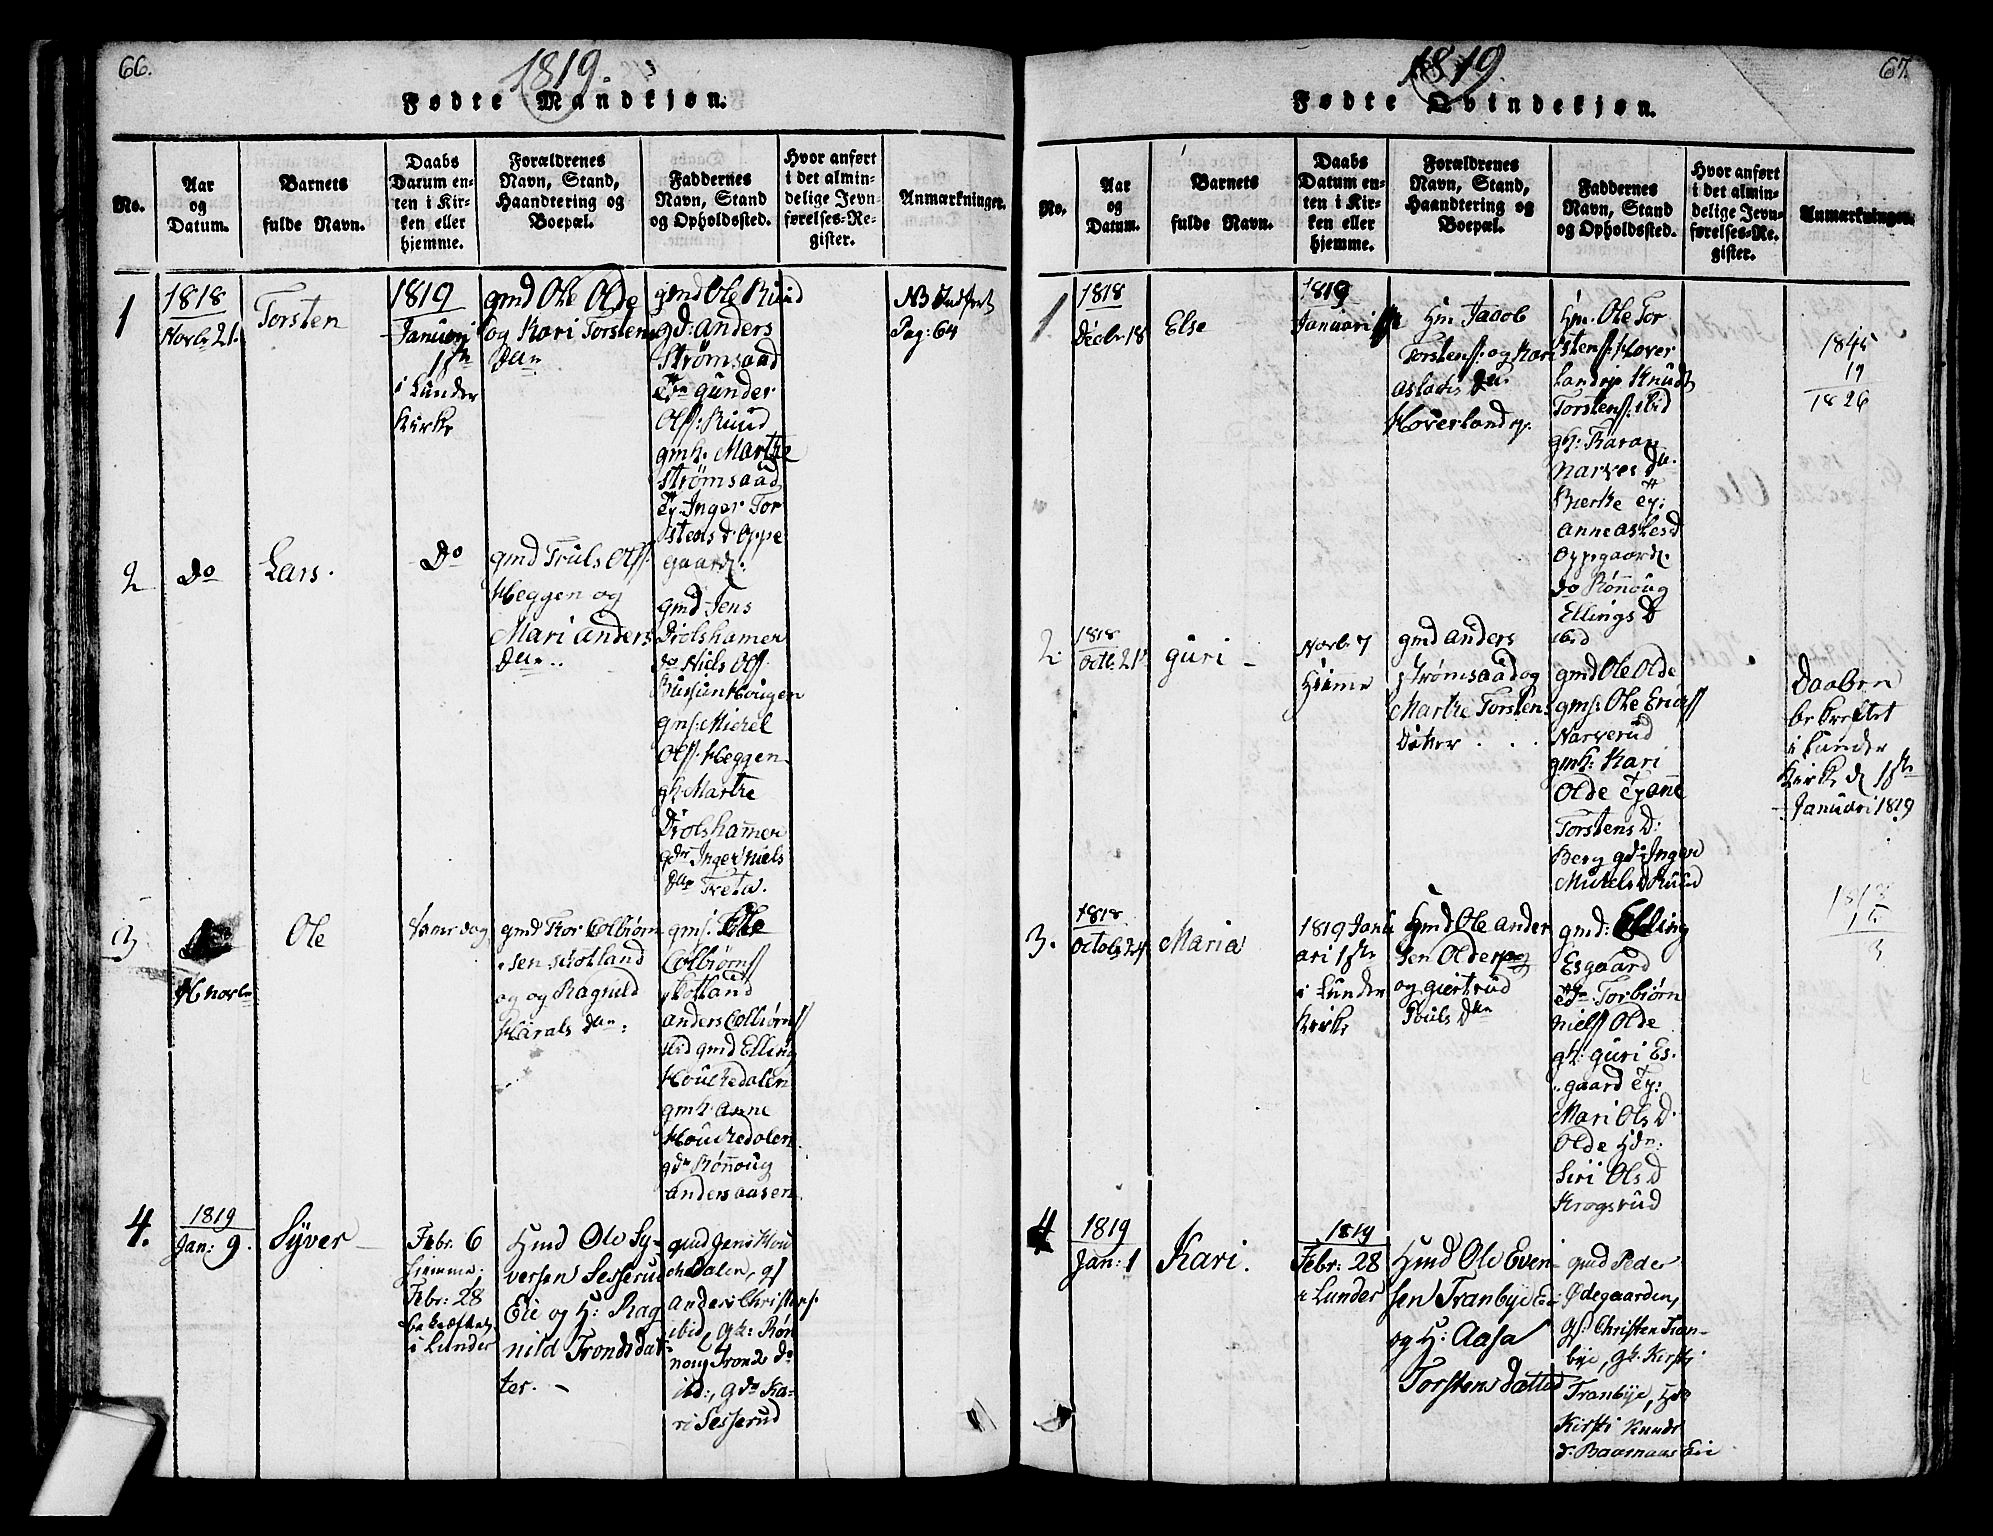 66.
1819.
Fødte Mandkjøn.
No.
Aar
og
Datum.
Barnets
fulde Navn.
Daabs
Datum en-
ten i Kir-
ken eller
hjemme.
Forældrenes
Navn, Stand,
Haandtering og
Boepæl.
Faddernes
Navn, Stand
og Opholdssted.
Hvor anført
i det almin-
delige Jevn-
førelses-Re-
gister.
Anmærkninger.
1
1818
Novbr 21.
Torsten
1819
Januari
1ste
i Lunder
Kirke
gmd Ole Olde
og Kari Torstens
Dtr
gmd Ole Ruud
gd: Anders
Strømsaad
gunder
Ols: Ruud
gmk. Marthe
Strømsaad
Ty. Inger Tor
stens d. Oppe
gaard.
NB Indført
Pag: 64
2
Do
Lars.
Do
gmd Truls Ols:
Heggen og
Mari Anders
Dtr.
gmd Jens
Drolshamer
do Niels Ols.
Bussunhougen
gms. Michel
Ols: Heggen
gk Marthe
Drolshammer
gdr Inger Niels
Dtr
3
Novbr
Ole
samedag
gmd Tor Colbiørn
sen Scotland
og og Ragnild
Harals Dtr:
gms. Ole
Colbiørns
Scotland
Anders Colbiørns
ibid gmd Elling
Houchedalen
gmk. Anne
Houchedalen
gdr Rønnoug
Andersaasen
4.
1819
Jan: 9.
Syver
Febr. 6
hiemme;
Febr: 28
bekræftet,
i Lunder
Hmd Ole Sy-
versen Sesserud
Eie og H: Rag
nild Tronds dat
ter.
gmd Jens Hou
chedalen, gs
Anders Christens.
ibid, gk: Røn
noug Trond do
ibd:, gdr Ka-
ri Sesserud
67.
1819.
Fødte Qvindekjøn.
No.
Aar
og
Datum.
Barnets
fulde Navn.
Daabs
Datum en-
ten i Kir-
ken eller
hjemme.
Forældrenes
Navn, Stand,
Haandtering og
Boepæl.
Faddernes
Navn, Stand
og Opholdssted.
Hvor anført
i det almin-
delige Jevn-
førelses-Re-
gister.
Anmærkninger.
1
1818
Decbr 18
Else
1819
Januari 1ste
Hm Jacob
Torstens: og Kari
Aslaks Dtr.
Hoverland
Hm. Ole Tor
stens: Hover
land Knud
Torstens: ibid
gk: Karan
Narves Dtr.
Bierke Ty:
Anne Asles d
Oppegaard.
do Rønnoug
Ellings D
ibid
1845
19
1826
2.
1818
Octb. 21
guri
Novbr 7
Hiemme
gmd Anders
Strømsaad og
Marthe Torstens
Datter
gmd Ole Olde
gms: Ole Erics
Narverud
gmk: Kari
Olde Ty Anne
Torstens D:
Berg gdr Inger
Michels D Ruud
Daaben
bekreftet
i Lunder
Kirke d 1ste
Januari 1819
3.
1818
Octob. 24
Maria
1819 Janu
ari 1ste
i Lunder
Kirke
Hmd Ole Ander
sen Olde
og giertrud
Dtr
gmd: Elling
Esgaard
Torbiørn
Niels Olde
gk: guri Es.
gaard Ty:
Mari Ols D.
Olde Hdr:
Siri Ols D
Krogsrud
4
1819
Jan: 1
Kari.
1819
Febr: 28
i Lunder
Hmd Ole Even
sen Tranbye Eie
og H: Aasa
Torstensdatter
gmd Peder
Ødegaarden,
gs: Christen Tran-
bye, gk. Kirsti
Tranbye,
Kirsti Knuds
d. Baasnaas Eie